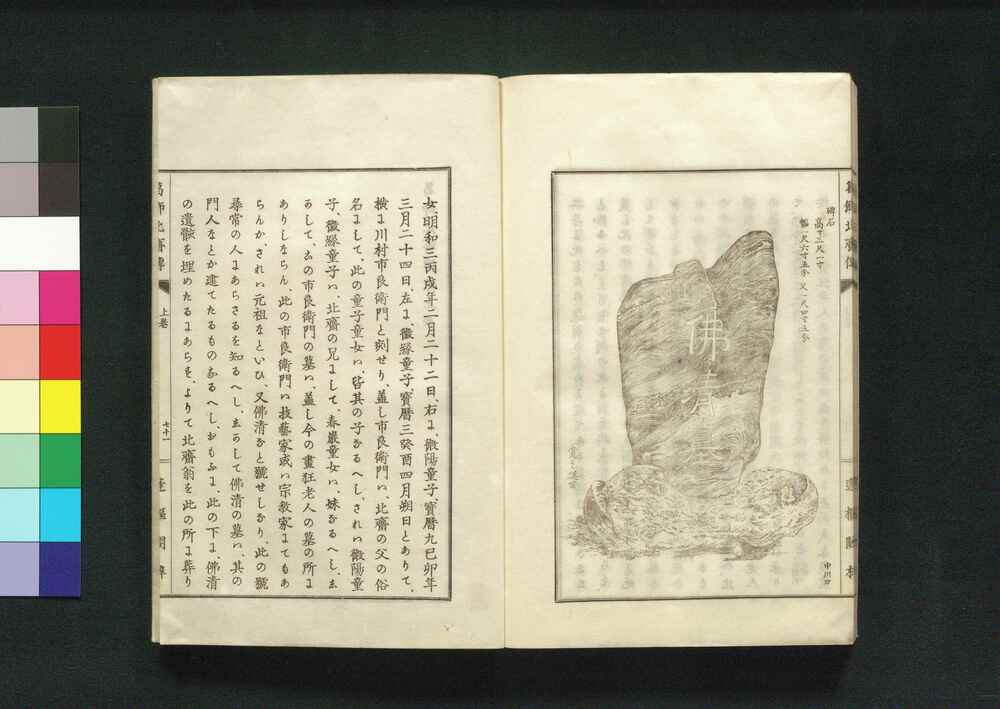 碑石
高サ三尺一寸
幅一尺六寸五分 又一尺四寸五分
佛
春
中川刀
女、明和三丙戌年二月二十二日、右よ、微陽童子、寳暦九巳卯年
三月二十四日、左よ、微縁童子、寳暦三癸酉四月朔日とありて、
横よ川村市良衛門と刻せり、蓋し市良衛門ハ、北齋の父の俗
名よして、此の童子童女ハ、皆其の子なるへし、されハ微陽童
子、微縁童子ハ、北齋の兄よして、春巖童女ハ、妹なるへし、志
かして、この市良衛門の墓ハ、蓋し今の畫狂老人の墓の所よ
ありしならん、此の市良衛門ハ技藝家或ハ宗教家よてもあ
らんか、されハ元祖なといひ、又佛清かと號せしなり、此の號
尋常の人よあらさるを知るへし、志かして佛清の墓ハ、其の
門人なとか建てたるものなるへし、おもふよ、此の下よ、佛清
の遺骸を埋めたるよあらを、よりて北齋翁を此の所よ葬り
葛飾北齋傳
上巻
七十一
蓬樞閣梓